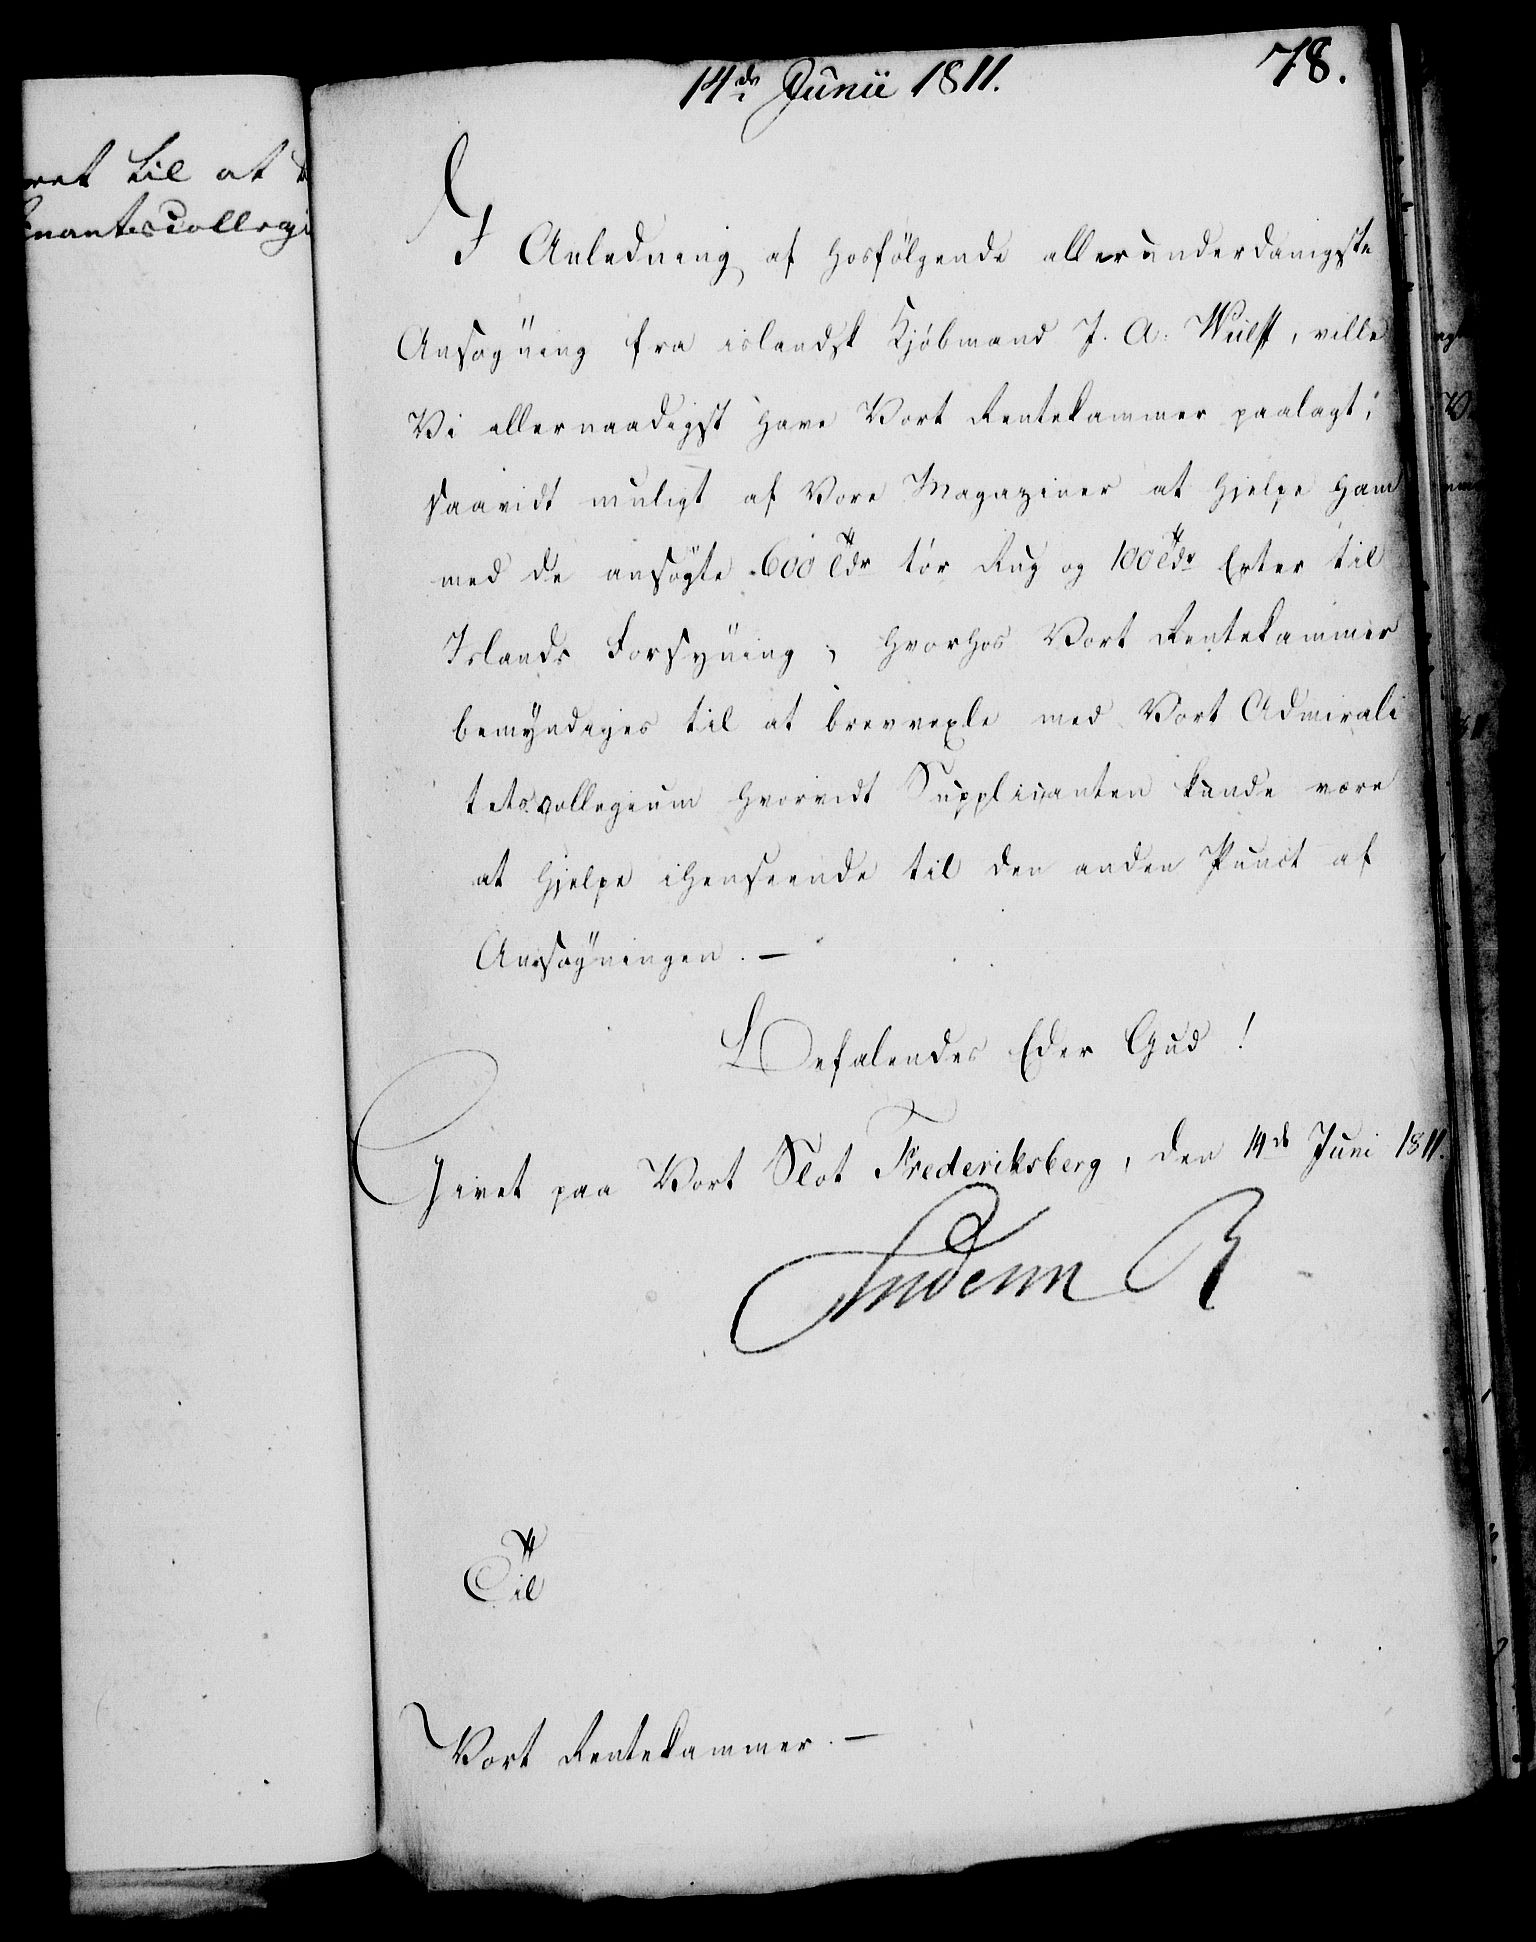 ret til at
nantscollegi
14de Junii 1811.
78.
I Anledning af hosfölgende allerunderdanigste
Ansøgning fra islandsk Kjöbmand J. A. Wulff, ville
Vi allernaadigst have Vort Rentekammer paalagt,
saavidt muligt af Vore Magaziner at hjelpe ham
med de ansøgte 600 Tdr tör Rug og 100 Tdr Erter til
Islands Forsyning, hvorhos Vort Rentekammer
bemyndiges til at brevvexle med Vort Admirali
tetscollegium hvorvidt Supplicanten kunde være
at hjelpe ihenseende til den anden Punct af
Ansøgningen. —
Befalendes Eder Gud!
Givet paa Vort Slot Frederiksberg, den 14de Juni 1811.
Friderich R
Til
Vort Rentekammer. —